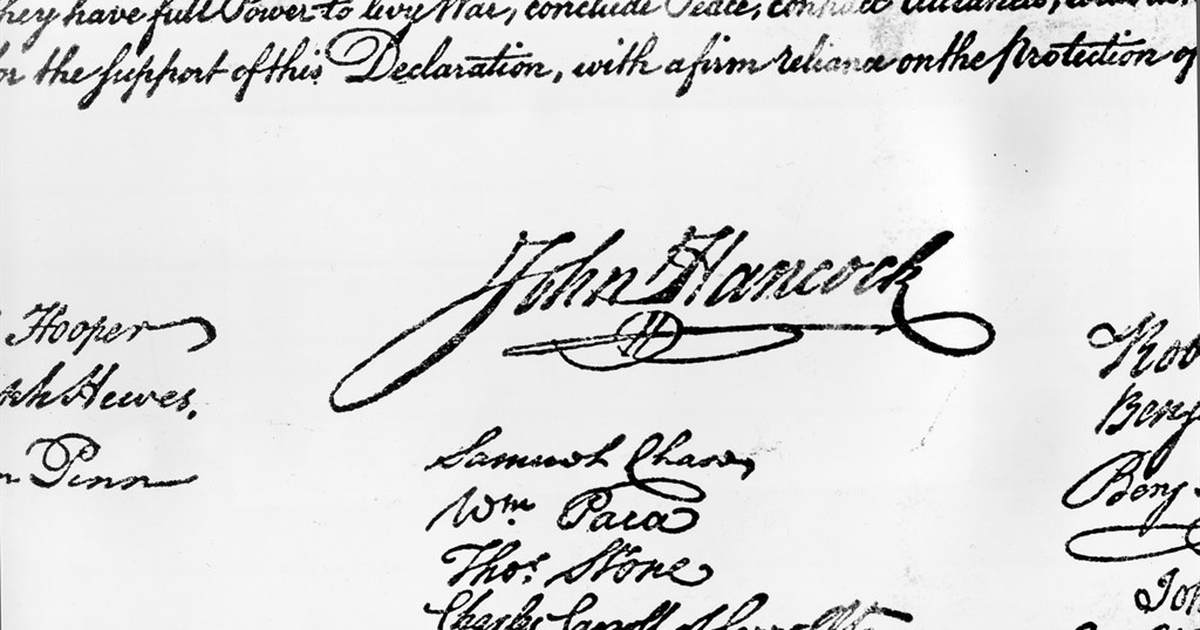 they have full Power to levy War, conclude Peace, contract Alliances,
for the support of this Declaration, with a firm reliance on the protection of
John Hancock
Hooper
Hewes.
Penn
Samuel Chase
Wm. Paca
Thos. Stone
Charles Carroll of Carrollton
Rob
Benj
Benj
Joh